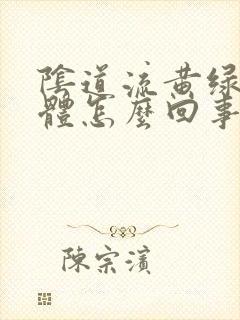 陰道流黄绿
體怎麼回事
陳宗濱